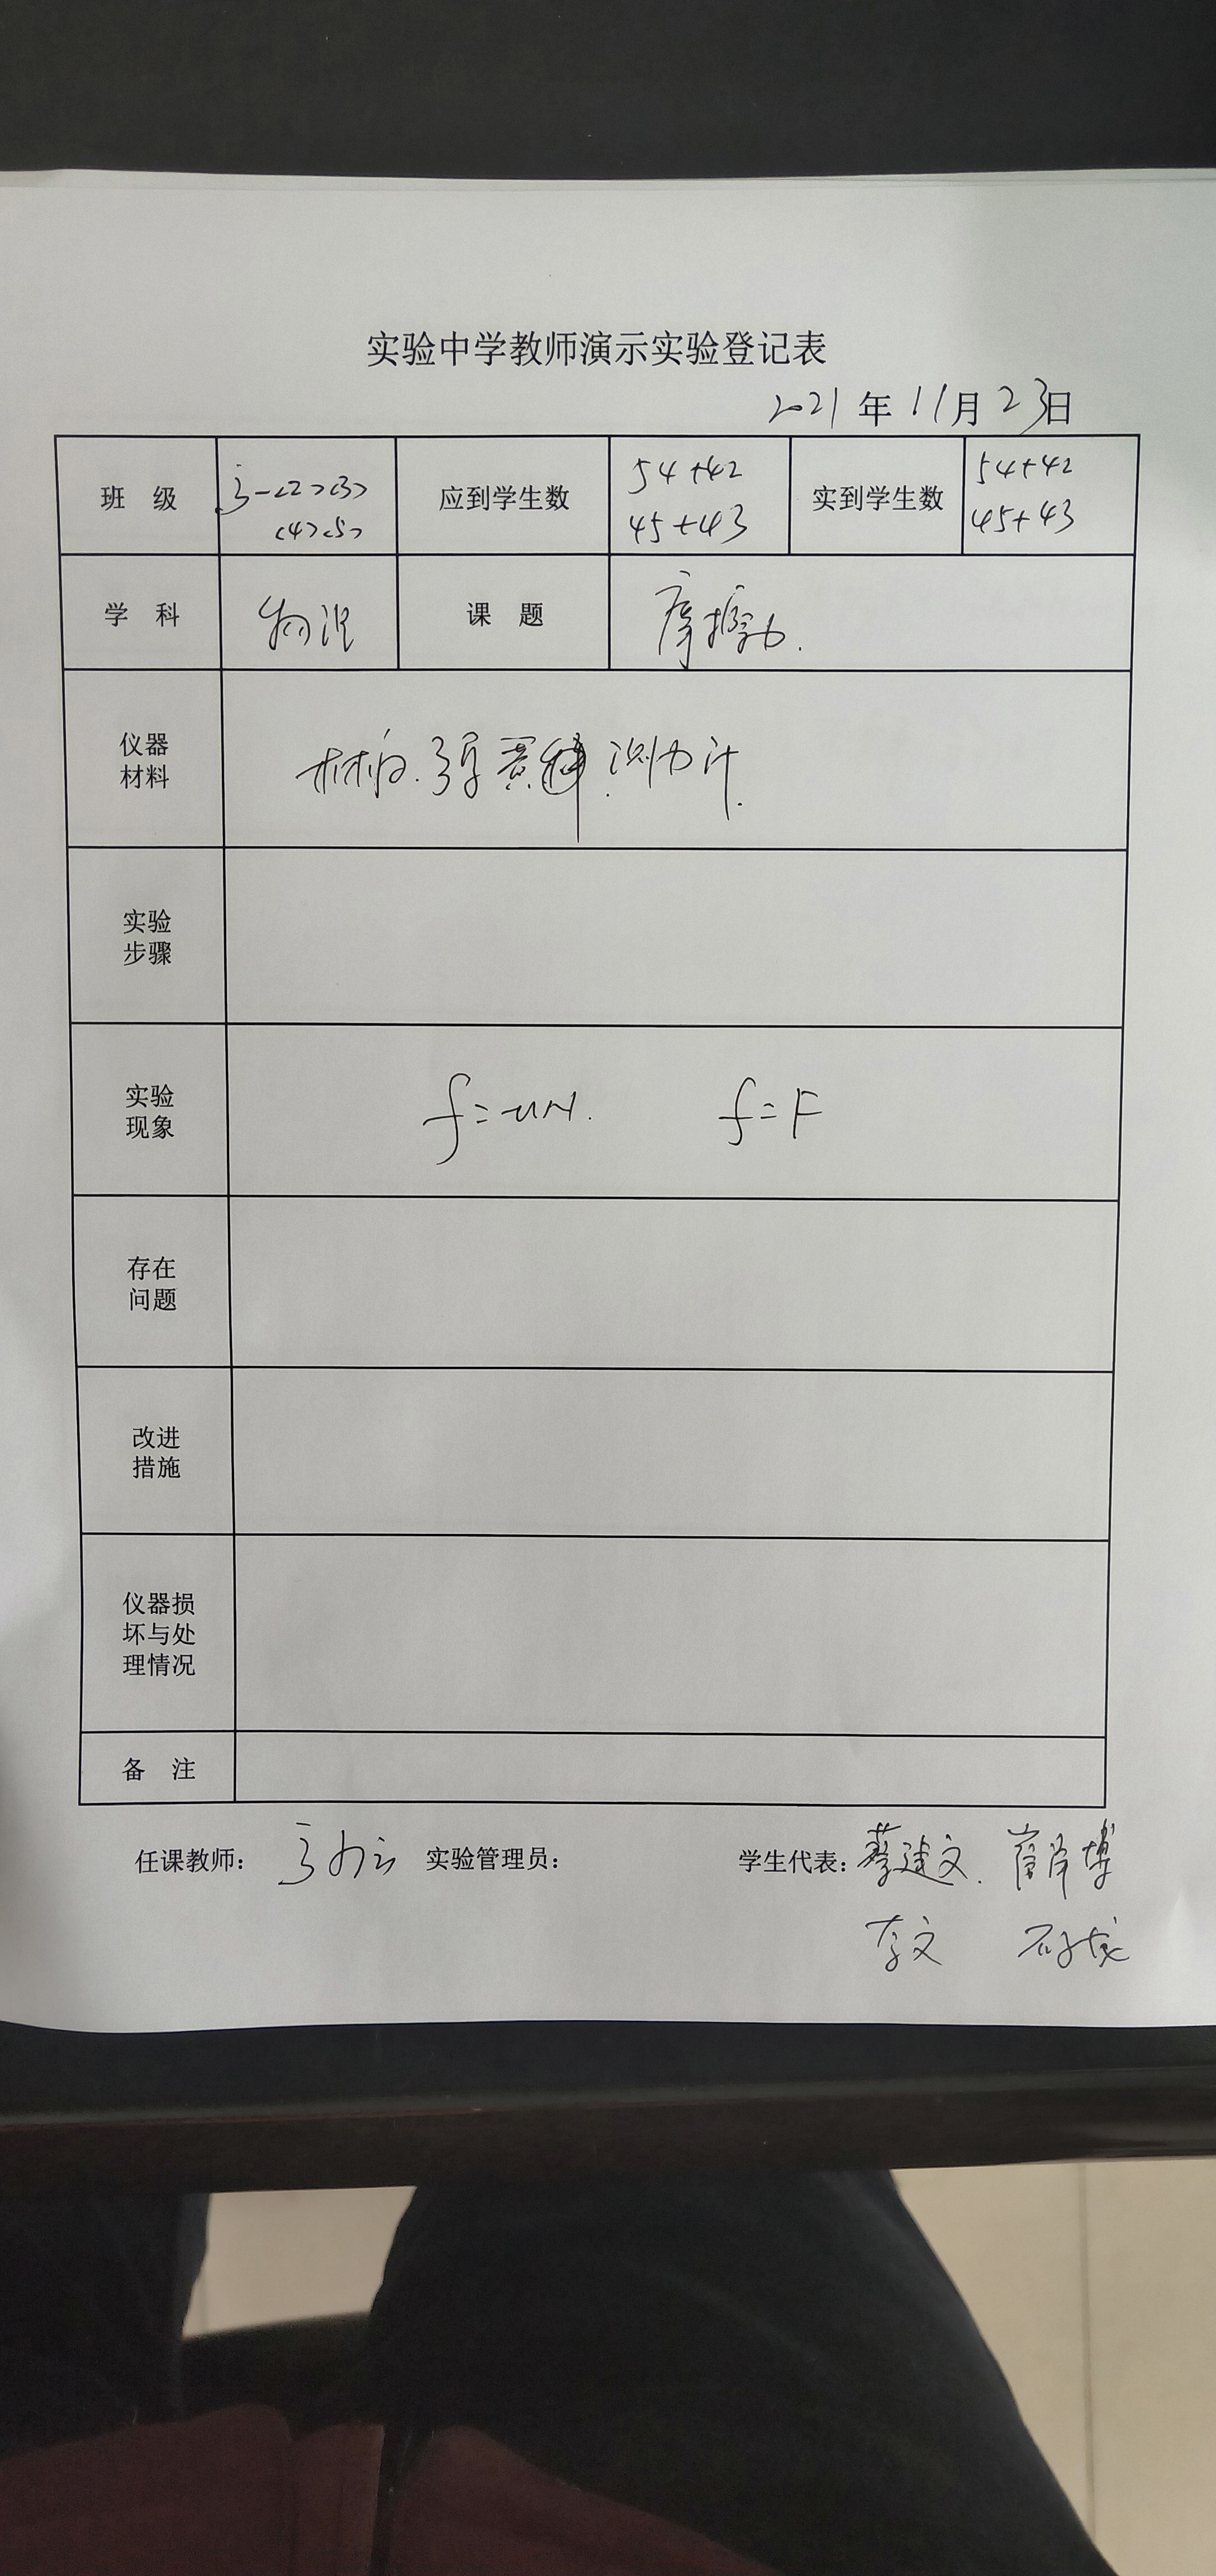 实验中学教师演示实验登记表
2021年11月23日
班 级 高一<2><3> 应到学生数 54+42 实到学生数 54+42
<4><5> 45+43 45+43
学 科 物理 课 题 摩擦力.
仪器
材料
木板.弹簧 测力计.
实验
步骤
实验
现象
f=uN. f=F
存在
问题
改进
措施
仪器损
坏与处
理情况
备 注
任课教师: 实验管理员: 学生代表:蔡建文. 薛泽博
李文